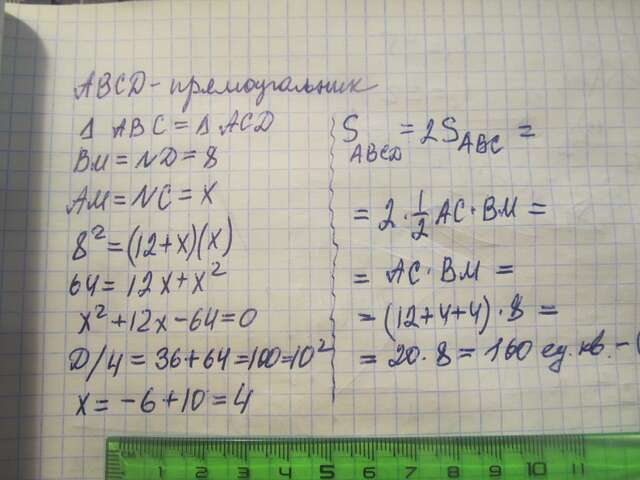 ABCD - прямоугольник
Δ ABC = Δ ACD
BM = ND = 8
AM = NC = x
8² = (12+x)(x)
64 = 12x + x²
x² + 12x - 64 = 0
D/4 = 36 + 64 = 100 = 10²
x = -6 + 10 = 4
S ABCD = 2S ABC =
= 2 · 1/2 AC · BM =
= AC · BM =
= (12+4+4) · 8 =
= 20 · 8 = 160 ед. кв. - (
1 2 3 4 5 6 7 8 9 10 11